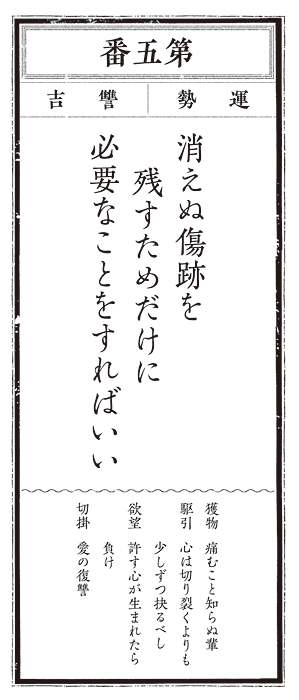 第五番
運勢
讐吉
消えぬ傷跡を
残すためだけに
必要なことをすればいい
獲物 痛むこと知らぬ輩
駆引 心は切り裂くよりも
少しずつ抉るべし
欲望 許す心が生まれたら
負け
切掛 愛の復讐